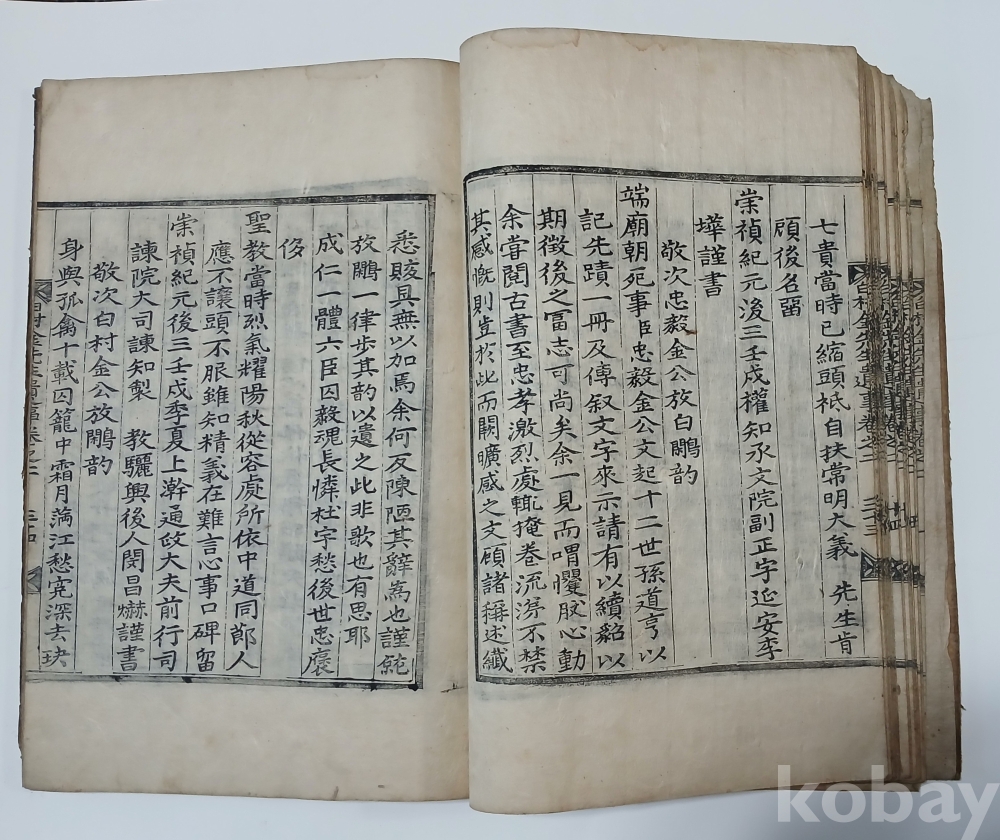 七貴當時已縮頭柢自扶常明大義 先生肯
顧後名留
崇禎紀元後三壬戌權知承文院副正字延安李
墷謹書
敬次忠毅金公放白鷳韵
端廟朝死事臣忠毅金公文起十二世孫道亨以
記先蹟一冊及傳叙文字來示請有以續貂以
期徵後之冨志可尚矣余一見而喟懼胶心動
余甞閱古書至忠孝激烈處輒掩卷流涕不禁
其感慨則豈於此而闕曠感之文顧諸稱述纖
悉賅具無以加焉余何反陳陋其辭爲也謹䋎
放鷳一律歩其韵以遺之此非歌也有思耶
成仁一體六臣囚毅魂長憐杜宇愁後世忠褒
侈
聖教當時烈氣耀陽秋從容處所依中道同節人
應不讓頭不服錐知精義在難言心事口碑留
崇禎紀元後三壬戌季夏上澣通政大夫前行司
諫院大司諫知製 教驪興後人閔昌爀謹書
敬次白村金公放鷳韵
身與孤禽十載囚籠中霜月滿江愁宄深去玦
白村金先生遺事卷之二
kobay